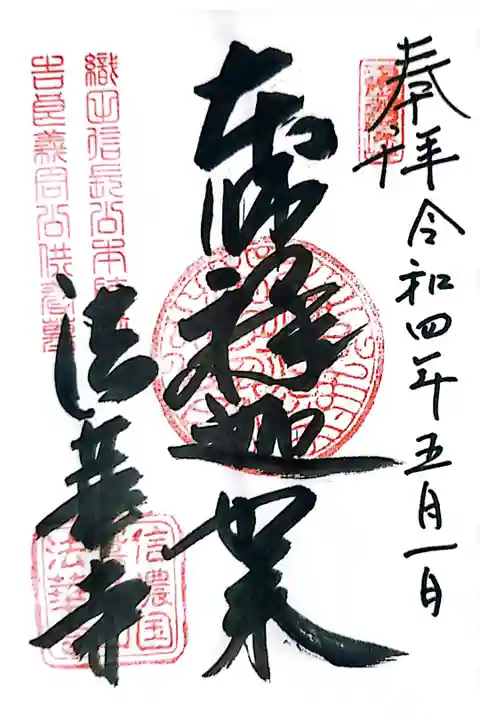 奉拝 令和四年五月一日
本師釋迦如来
法華寺
織田信長公本陣
吉良義周公供養墓
信濃国
法華寺